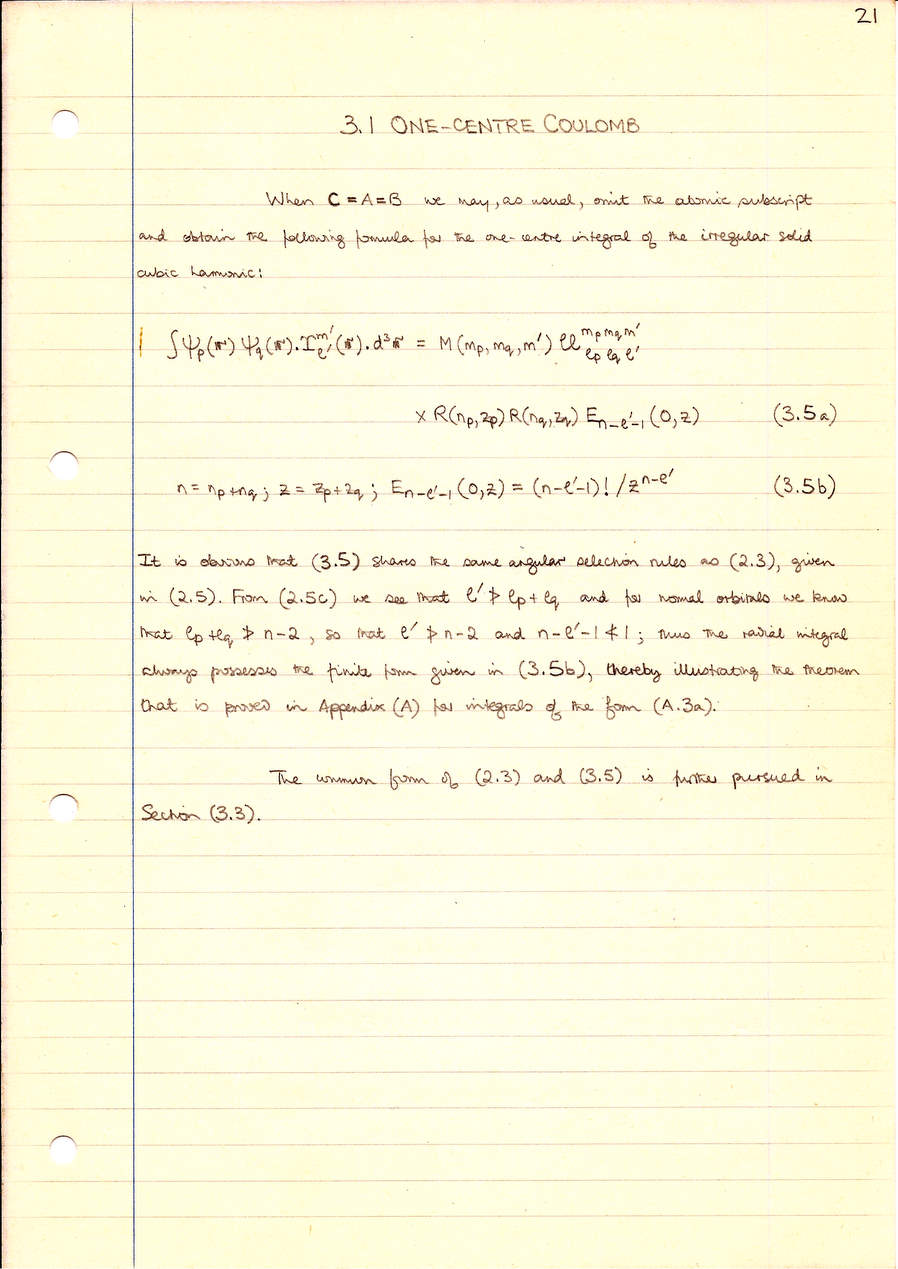 21
3.1 ONE-CENTRE COULOMB
When C = A = B we may, as usual, omit the atomic subscript
and obtain the following formula for the one-centre integral of the irregular solid
cubic harmonic:
∫ψₚ(r) ψ_q(r).I_{ℓ'}^{m'}(r).d³r = M(mₚ, m_q, m') 𝓁𝓁_{ℓₚ ℓ_q ℓ'}^{mₚ m_q m'}
× R(nₚ,zₚ) R(n_q,z_q) E_{n-ℓ'-1}(0,z) (3.5a)
n = nₚ+n_q ; z = zₚ+z_q ; E_{n-ℓ'-1}(0,z) = (n-ℓ'-1)! / z^{n-ℓ'} (3.5b)
It is obvious that (3.5) shares the same angular selection rules as (2.3), given
in (2.5). From (2.5c) we see that ℓ' ≯ ℓₚ+ℓ_q and for normal orbitals we know
that ℓₚ+ℓ_q ≯ n-2, so that ℓ' ≯ n-2 and n-ℓ'-1 ≮ 1 ; thus the radial integral
always possesses the finite form given in (3.5b), thereby illustrating the theorem
that is proved in Appendix (A) for integrals of the form (A.3a).
The common form of (2.3) and (3.5) is further pursued in
Section (3.3).